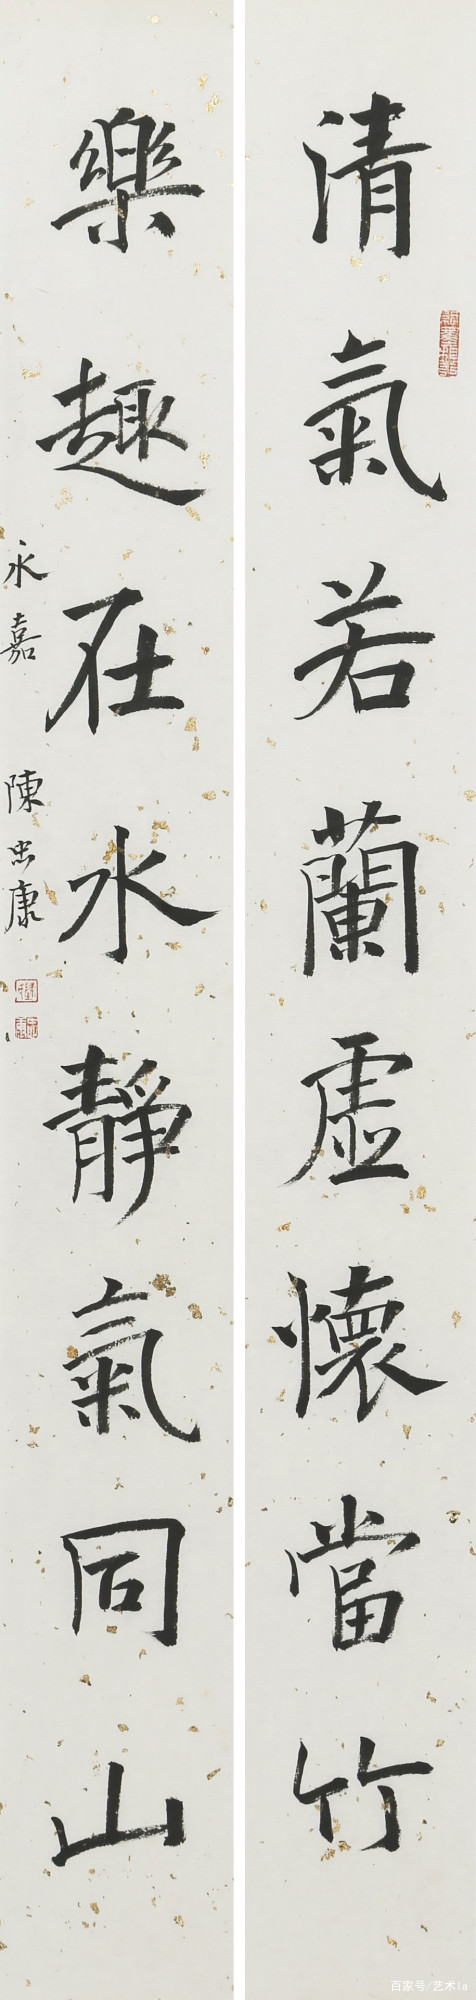 清氣若蘭虛懷當竹
樂趣在水靜氣同山
永嘉 陳忠康
百家号/艺术la